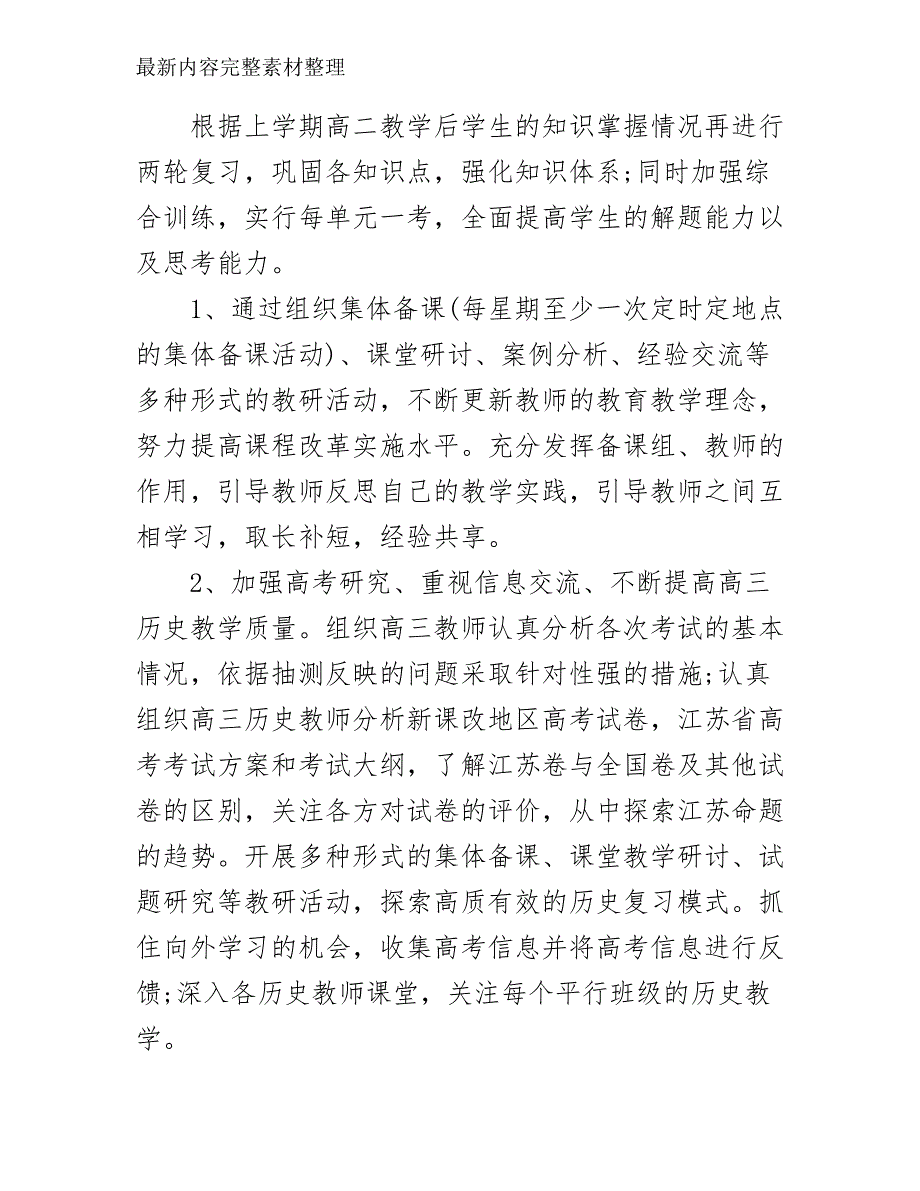 最新内容完整素材整理
根据上学期高二教学后学生的知识掌握情况再进行
两轮复习，巩固各知识点，强化知识体系;同时加强综
合训练，实行每单元一考，全面提高学生的解题能力以
及思考能力。
1、通过组织集体备课(每星期至少一次定时定地点
的集体备课活动)、课堂研讨、案例分析、经验交流等
多种形式的教研活动，不断更新教师的教育教学理念，
努力提高课程改革实施水平。充分发挥备课组、教师的
作用，引导教师反思自己的教学实践，引导教师之间互
相学习，取长补短，经验共享。
2、加强高考研究、重视信息交流、不断提高高三
历史教学质量。组织高三教师认真分析各次考试的基本
情况，依据抽测反映的问题采取针对性强的措施;认真
组织高三历史教师分析新课改地区高考试卷，江苏省高
考考试方案和考试大纲，了解江苏卷与全国卷及其他试
卷的区别，关注各方对试卷的评价，从中探索江苏命题
的趋势。开展多种形式的集体备课、课堂教学研讨、试
题研究等教研活动，探索高质有效的历史复习模式。抓
住向外学习的机会，收集高考信息并将高考信息进行反
馈;深入各历史教师课堂，关注每个平行班级的历史教
学。